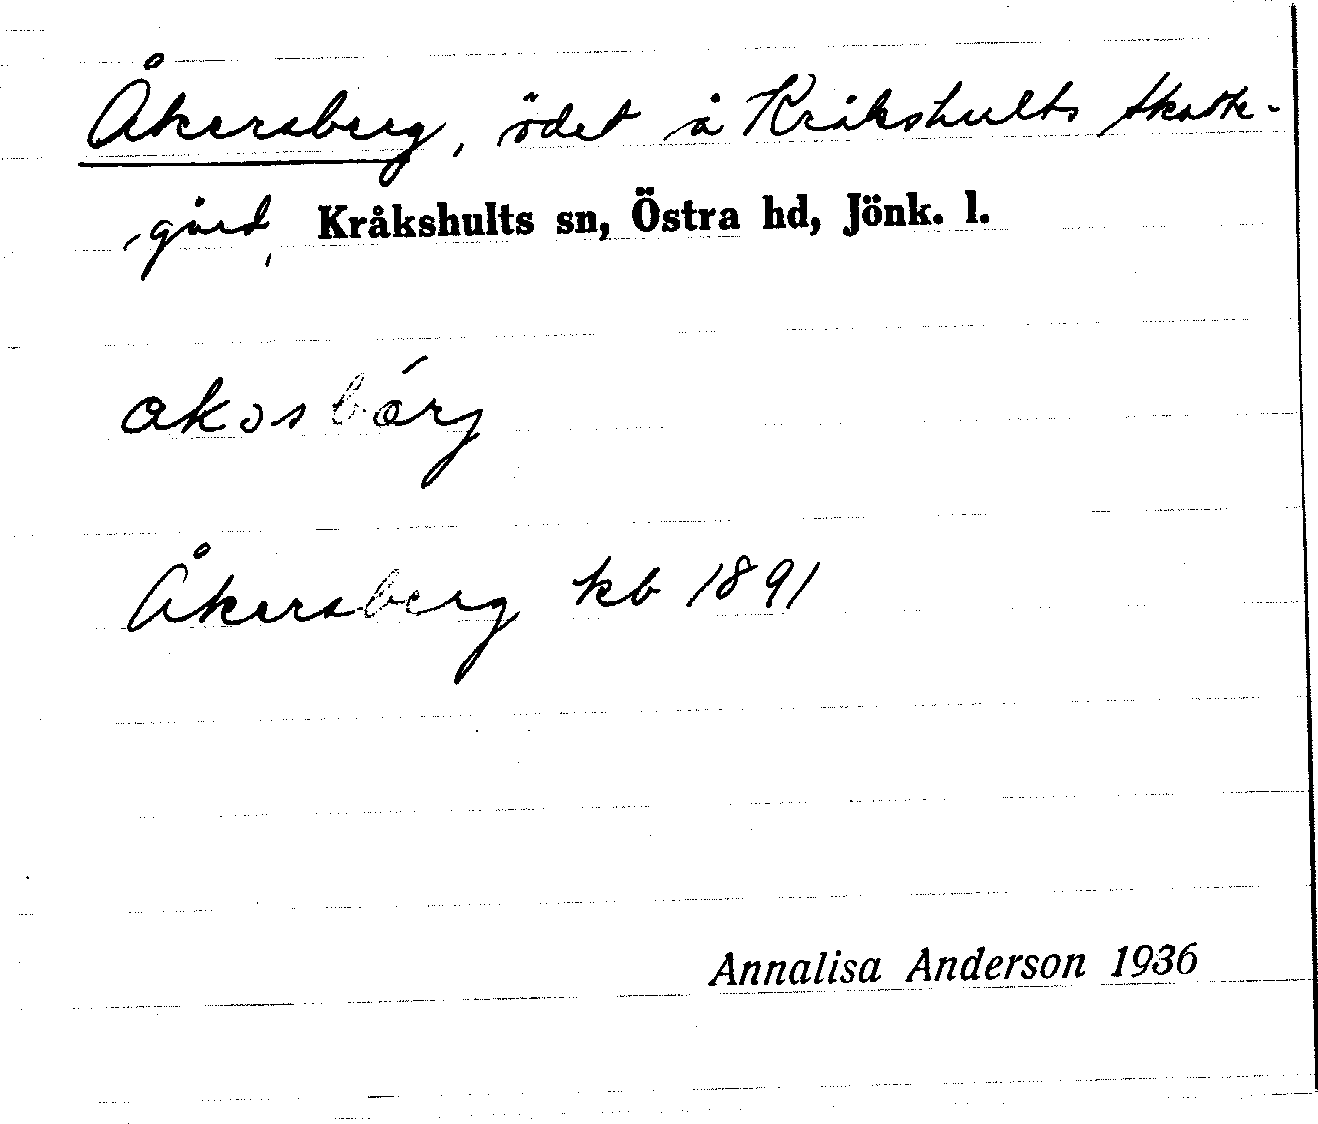 Åkersberg, ödet å Kråkshults Skatte-
gård, Kråkshults sn, Östra hd, Jönk. l.
akəsbárj
Åkersberg kb 1891
Annalisa Anderson 1936